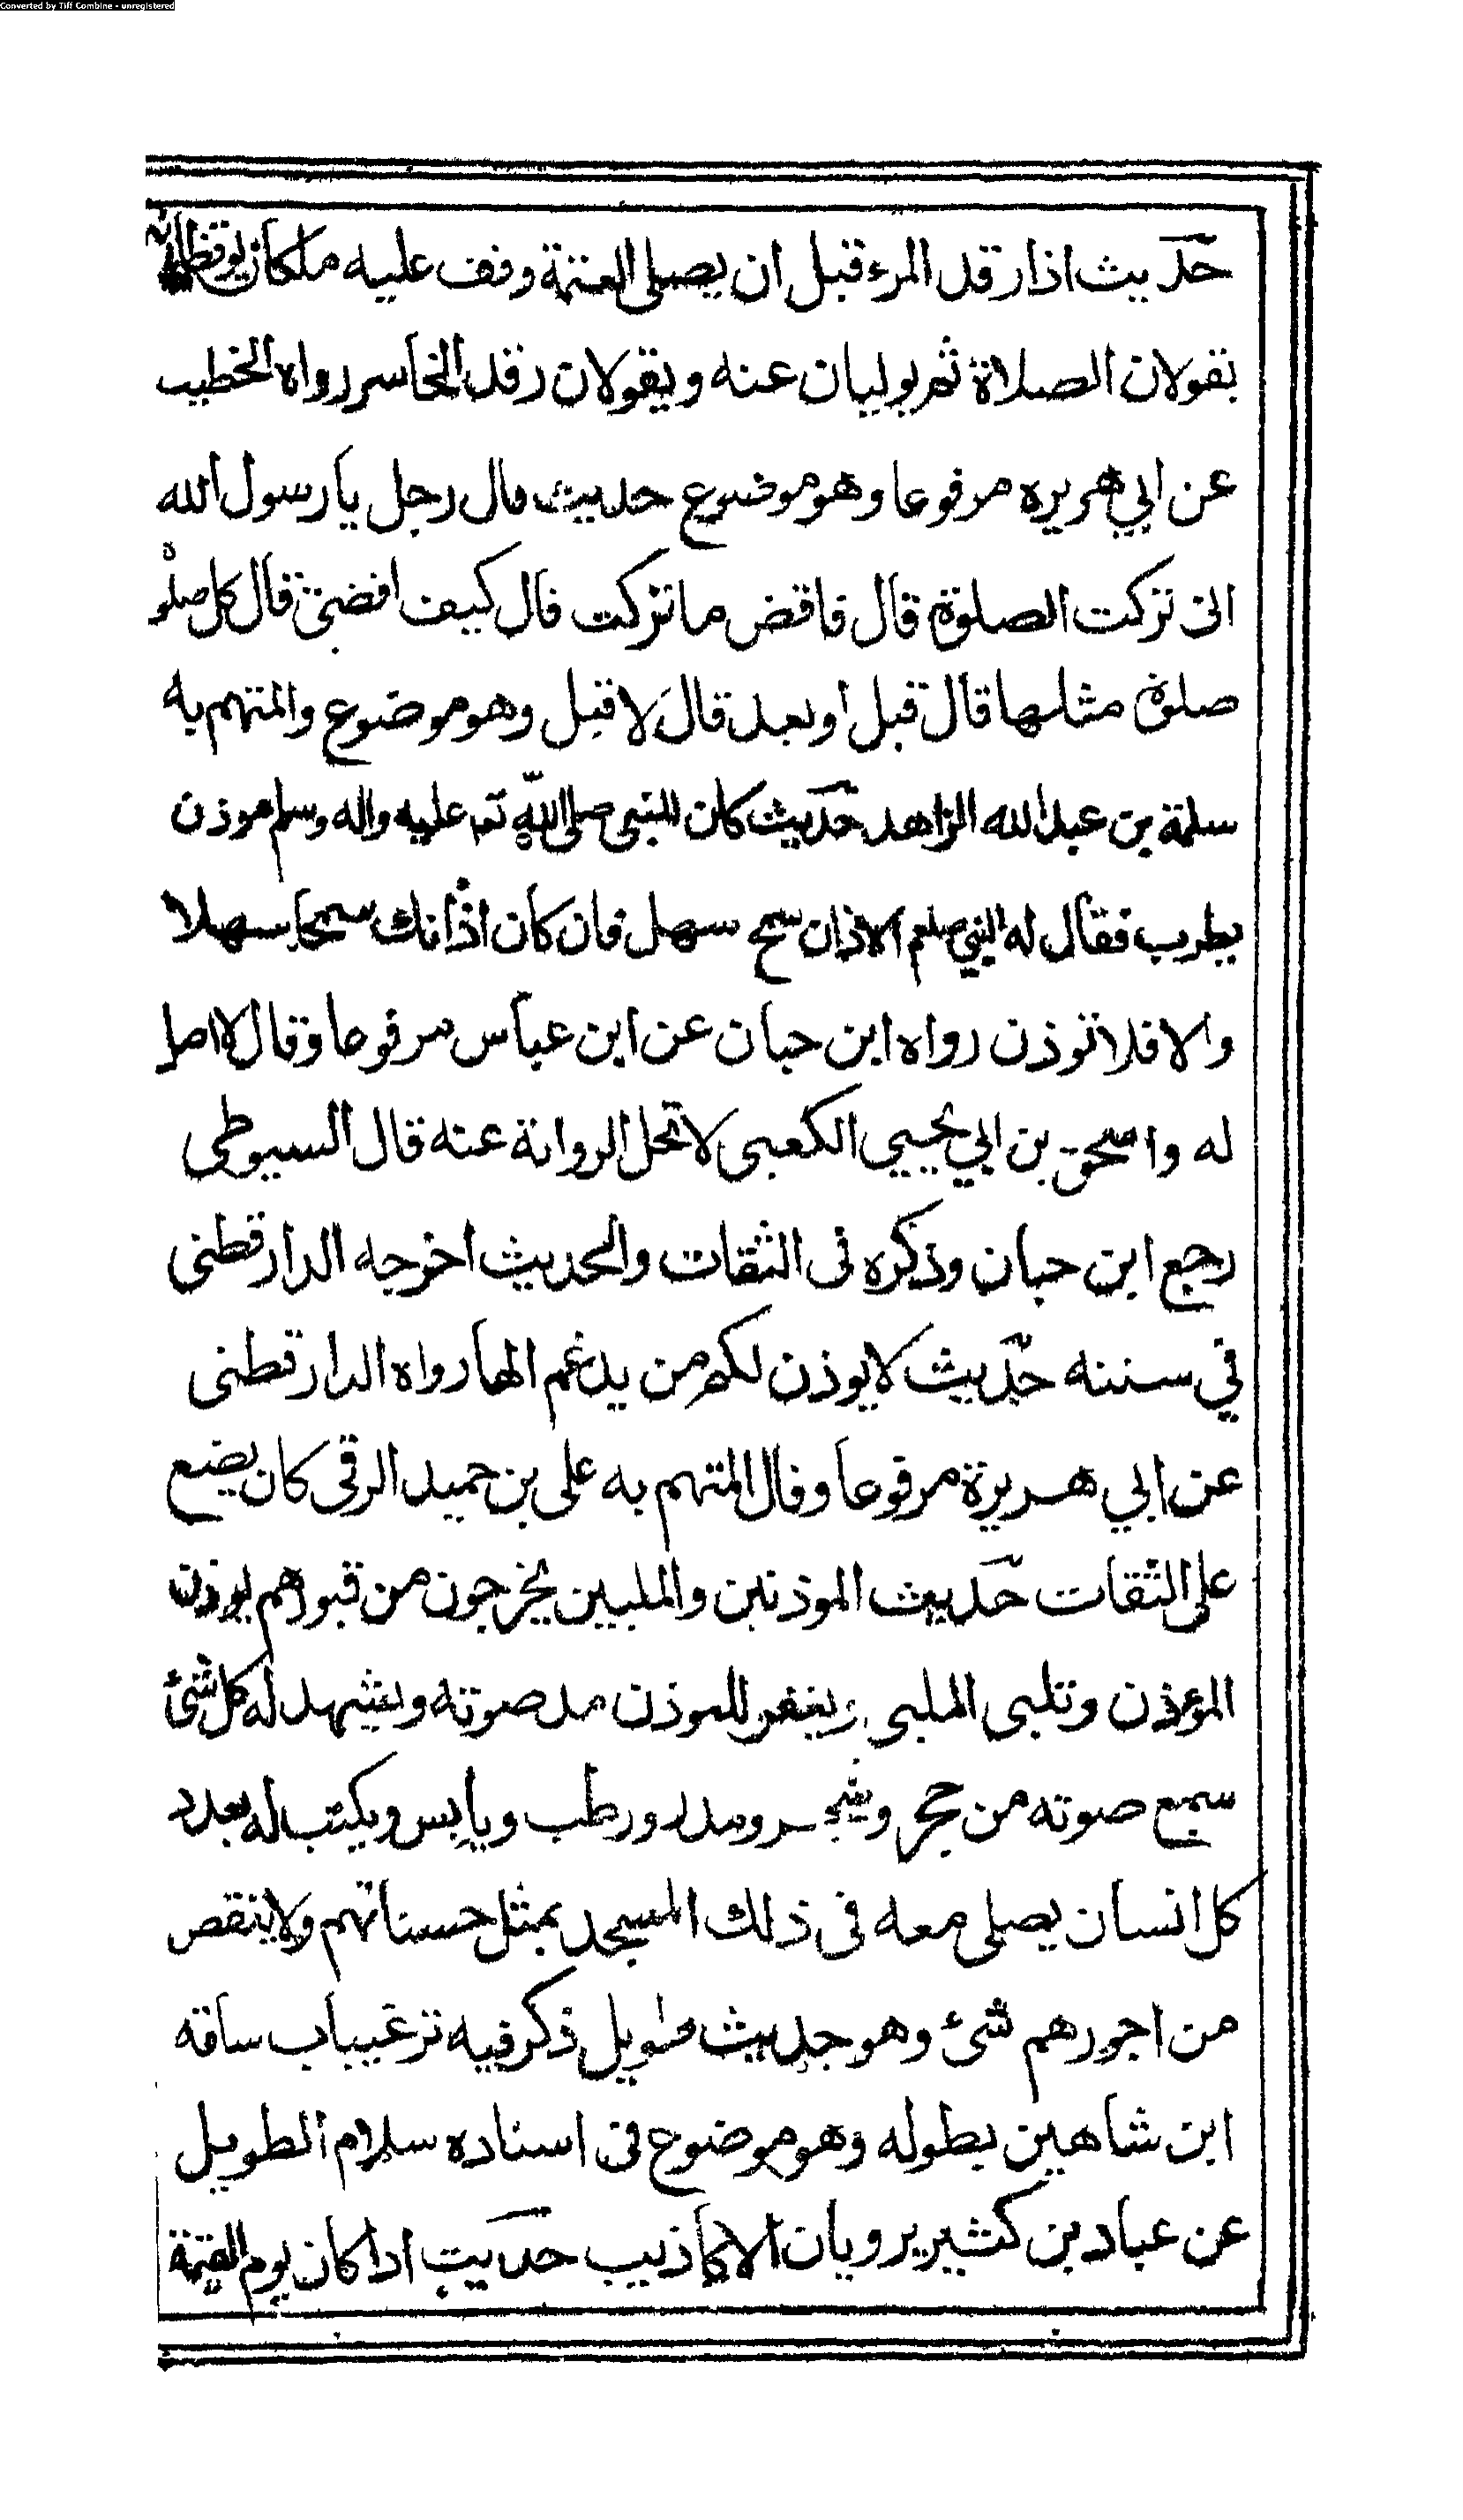 Converted by Tiff Combine - unregistered
حديث اذا رقد المرء قبل ان يصلى العتمة وقف عليه ملكان يوقظانه
يقولان الصلاة ثم يوليان عنه ويقولان رقد الخاسر رواه الخطيب
عن ابي هريره مرفوعا وهو موضوع حديث قال رجل يا رسول الله
انى تركت الصلوة قال فاقض ما تركت قال كيف اقضى قال كل صلوة
صلوة مثلها قال قبل او بعد قال لا قبل وهو موضوع والمتهم به
سلمة بن عبد الله الزاهد حديث كان للنبى صلى الله تم عليه واله وسلم موذن
يطرب فقال له النبي صلعم الاذان سمح سهل فان كان اذانك سمحا سهلا
والا فلا توذن رواه ابن حبان عن ابن عباس مرفوعا وقال لا اصل
له واسحق بن ابي يحيي الكعبى لا تحل الرواية عنه قال السيوطى
رجع ابن حبان وذكره فى الثقات والحديث اخرجه الدارقطنى
في سننه حديث لا يوذن لكم من يدغم الها رواه الدارقطنى
عن ابي هريرة مرفوعا وقال المتهم به على بن جميد الرقى كان يضع
على الثقات حديث الموذنين والملبين يخرجون من قبورهم يوذن
الموءذن وتلبى الملبى ويغفر للموذن مد صوته ويشهد له كل شئ
سمع صوته من حجر وشجر ومدر ورطب ويابس ويكتب له بعدد
كل انسان يصلى معه فى ذلك المسجد بمثل حسناتهم ولا ينقص
من اجورهم شئ وهو حديث طويل ذكر فيه ترغيبات ساقه
ابن شاهين بطوله وهو موضوع فى اسناده سلام الطويل
عن عباد بن كثير يرويان الاكاذيب حديث اذا كان يوم القيمة